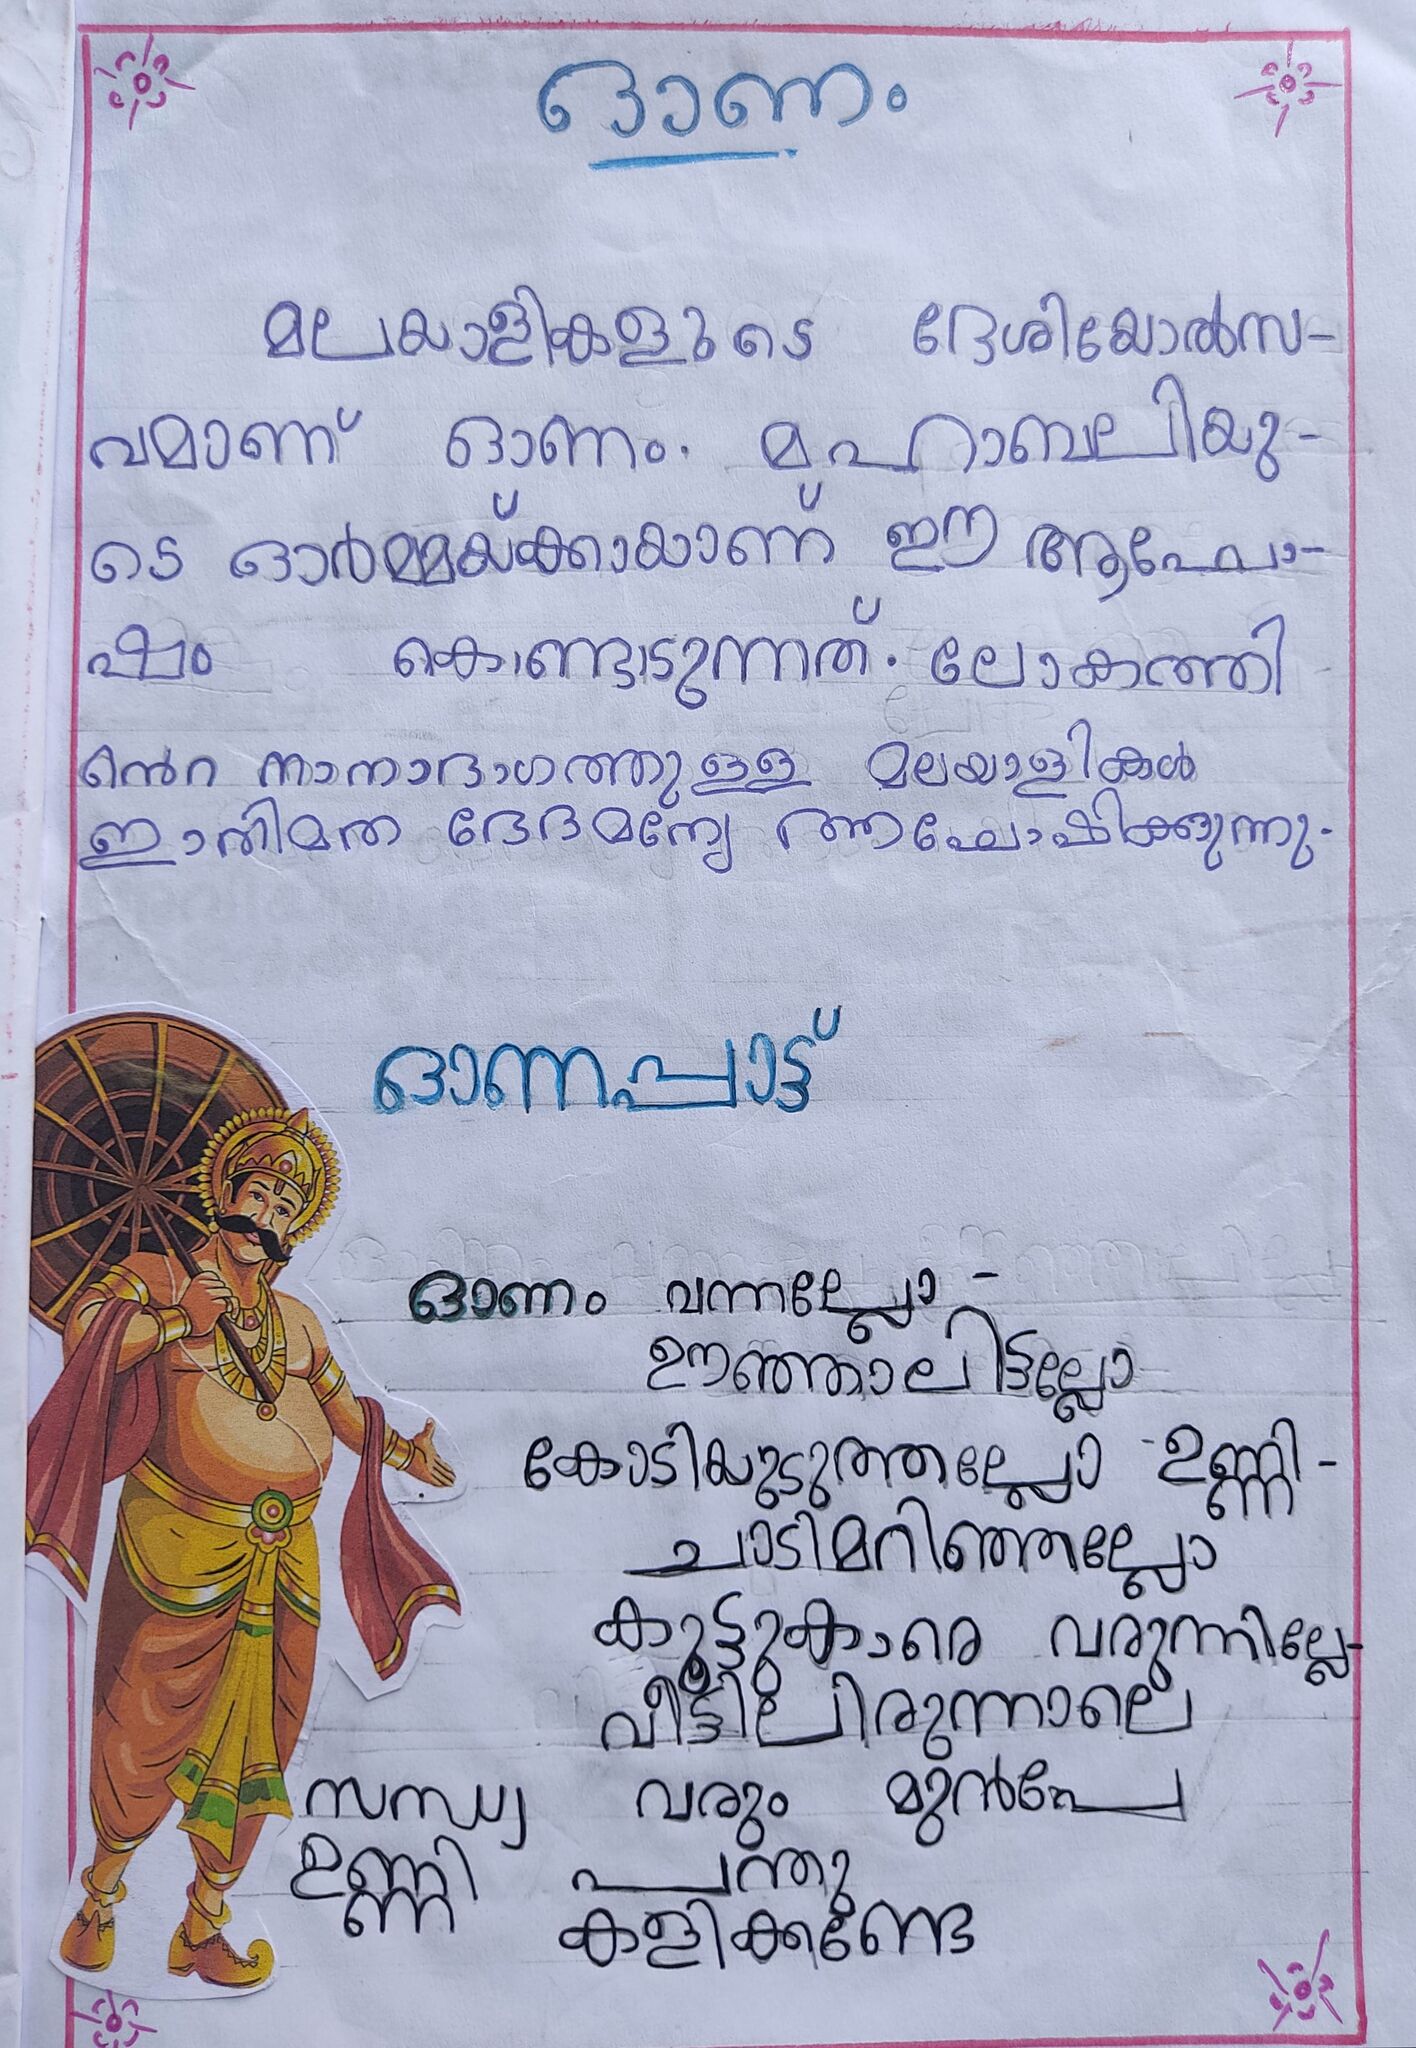 ഓണം
മലയാളികളുടെ ദേശിയോൽസ-
വമാണ് ഓണം. മഹാബലിയു-
ടെ ഓർമ്മയ്ക്കായാണ് ഈ ആഘോ-
ഷം കൊണ്ടാടുന്നത്. ലോകത്തി
ൻെറ നാനാഭാഗത്തുള്ള മലയാളികൾ
ജാതിമത ഭേദമന്യേ ആഘോഷിക്കുന്നു.
ഓണപ്പാട്ട്
ഓണം വന്നല്ലോ -
ഊഞ്ഞാലിട്ടല്ലോ
കോടിയുടുത്തല്ലോ ഉണ്ണി -
ചാടിമറിഞ്ഞല്ലോ
കൂട്ടുകാരെ വരുന്നില്ലേ-
വീട്ടിലിരുന്നാലെ
സന്ധ്യ വരും മുൻപേ
ഉണ്ണി പന്തു
കളിക്കണ്ടേ